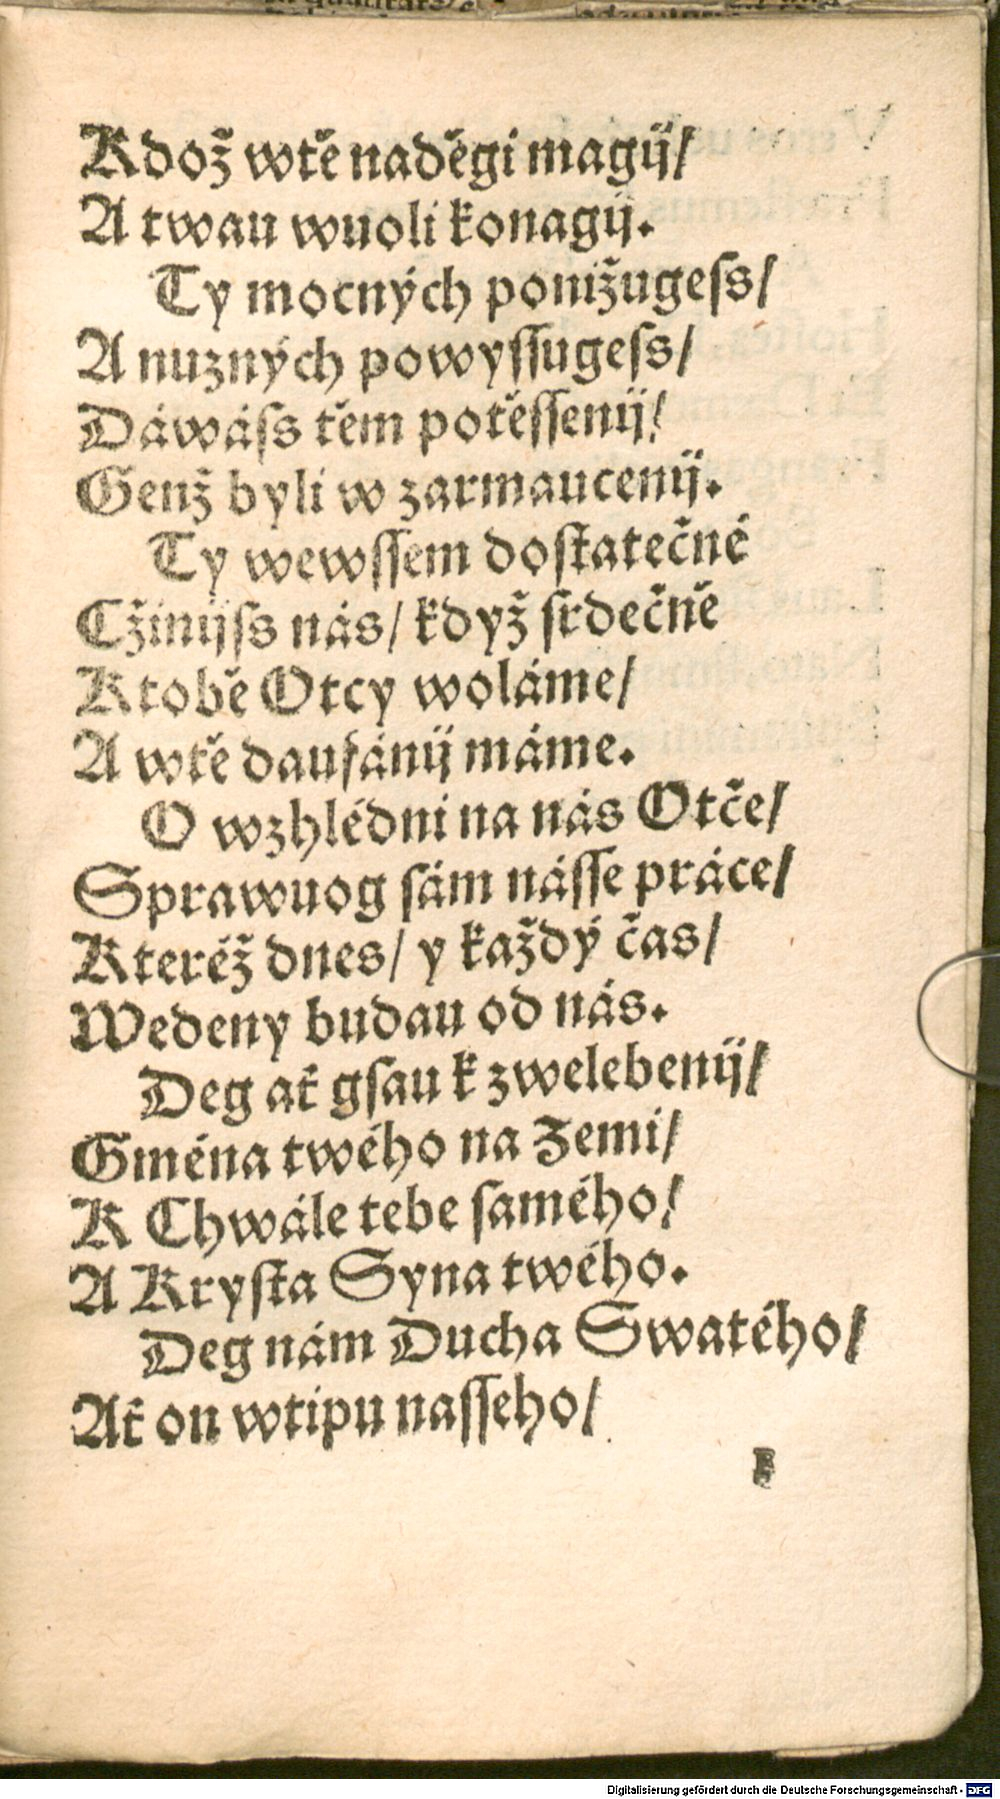 Kdož wtě naděgi magij/
A twau wuoli konagij.
Ty mocných ponižugeſs/
A nuzných powyſſugeſs/
Dáwáſs těm potěſſenij/
Genž byli w zarmaucenij.
Ty wewſſem doſtatečné
Cžinijſs nás/ když ſrdečně
K tobě Otcy woláme/
A wtě daufánij máme.
O wzhlédni na nás Otče/
Sprawuog ſám náſſe práce/
Kteréž dnes/ y každý čas/
Wedeny budau od nás.
Deg ať gſau k zwelebenij/
Gména twého na Zemi/
K Chwále tebe ſamého/
A Kryſta Syna twého.
Deg nám Ducha Swatého/
Ať on wtipu naſſeho/
Digitalisierung gefördert durch die Deutsche Forschungsgemeinschaft - DFG